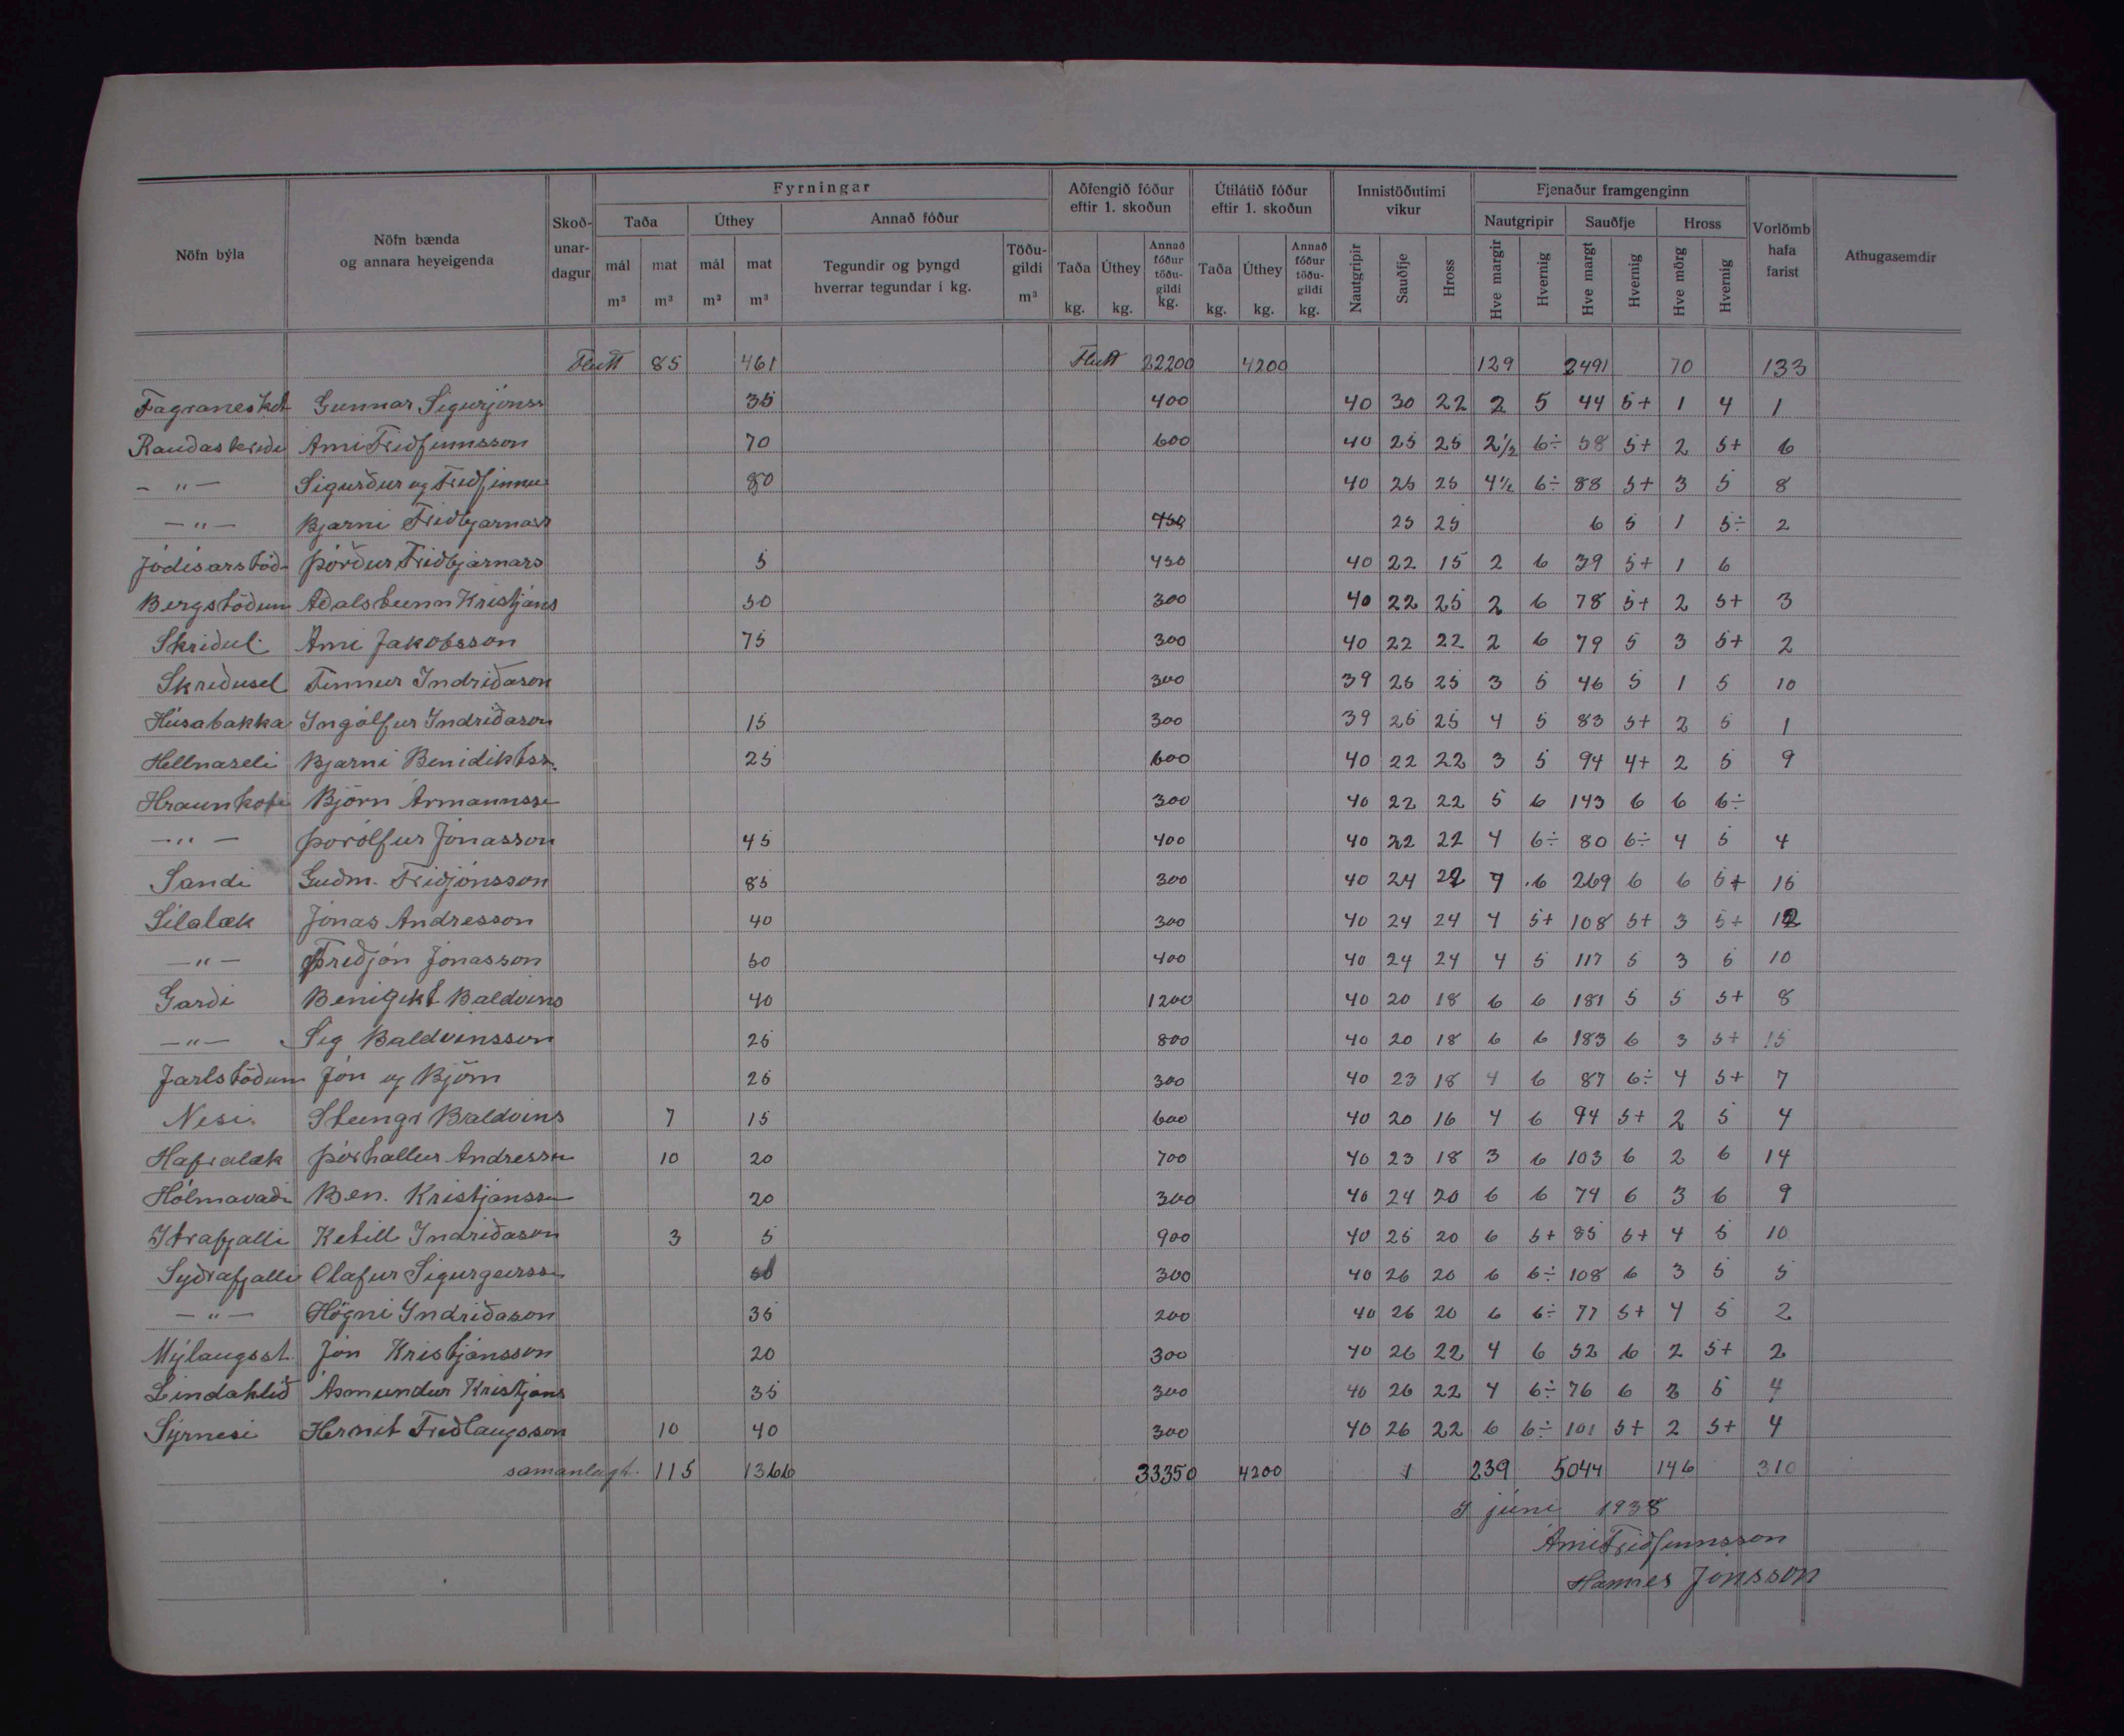 Fyrningar
Aðfengið fóður eftir 1. skoðun
Útilátið fóður eftir 1. skoðun
Innistöðutími vikur
Fjenaður framgenginn
Nöfn býla
Nöfn bænda og annara heyeigenda
Skoð-unar-dagur
Taða
Úthey
Annað fóður
Nautgripir
Sauðfje
Hross
Vorlömb hafa farist
Athugasemdir
mál m³ mat m³ mál m³ mat m³
Tegundir og þyngd hverrar tegundar í kg.
Töðu-gildi m³
Taða kg. Úthey kg. Annað fóður töðu-gildi kg.
Taða kg. Úthey kg. Annað fóður töðu-gildi kg.
Nautgripir Sauðfje Hross
Hve margir Hvernig Hve margt Hvernig Hve mörg Hvernig
Flutt 85 461 Flutt 22200 4200 129 2491 70 133
Fagraneskot Gunnar Sigurjónss 35 400 40 30 22 2 5 44 5+ 1 4 1
Raudaskridu Arni Fridfinnsson 70 600 40 25 25 2½ 6÷ 58 5+ 2 5+ 6
- " - Sigurður og Friðfinnur 80 40 25 25 4½ 6÷ 88 5+ 3 5 8
- " - Bjarni Friðbjarnars 450 25 25 6 5 1 5÷ 2
Jódísarstöd Þórður Friðbjarnars 5 450 40 22 15 2 6 39 5+ 1 6
Bergstöðum Aðalsteinn Kristjáns 50 300 40 22 25 2 6 78 5+ 2 5+ 3
Skridul Arni Jakobsson 75 300 40 22 22 2 6 79 5 3 5+ 2
Skriðusel Finnur Indriðason 300 39 25 25 3 5 46 5 1 5 10
Húsabakka Ingólfur Indriðason 15 300 39 25 25 4 5 83 5+ 2 5 1
Hellnaseli Bjarni Benidiktss. 25 600 40 22 22 3 5 94 4+ 2 5 9
Hraunkoti Björn Ármannsson 300 40 22 22 5 6 143 6 6 6÷
- " - Þorólfur Jónasson 45 400 40 22 22 4 6÷ 80 6÷ 4 5 4
Sandi Guðm. Friðjónsson 85 300 40 24 22 7 6 269 6 6 5+ 15
Sílalæk Jónas Andresson 40 300 40 24 24 4 5+ 108 5+ 3 5+ 12
- " - Friðjón Jónasson 50 400 40 24 24 4 5 117 5 3 5 10
Garði Benidikt Baldvins 40 1200 40 20 18 6 6 181 5 5 5+ 8
- " - Sig Baldvinsson 25 800 40 20 18 6 6 183 6 3 5+ 15
Jarlstöðum Jón og Björn 25 300 40 23 18 4 6 87 6÷ 4 5+ 7
Nesi Steingr Baldvins 7 15 600 40 20 16 4 6 94 5+ 2 5 4
Hafralæk Þórhallur Andresson 10 20 700 40 23 18 3 6 103 6 2 6 14
Hólmavaði Ben. Kristjánsson 20 300 40 24 20 6 6 74 6 3 6 9
Ytrafjalli Ketill Indriðason 3 5 900 40 25 20 6 5+ 85 5+ 4 5 10
Syðrafjalli Olafur Sigurgeirsson 300 40 26 20 6 6÷ 108 6 3 5 5
- " - Högni Indriðason 35 200 40 26 20 6 6÷ 77 5+ 4 5 2
Mýlaugsst. Jón Kristjánsson 20 300 40 26 22 4 6 52 6 2 5+ 2
Lindahlíð Ásmundur Kristjáns 35 300 40 26 22 4 6÷ 76 6 2 5 4
Sýrnesi Hernit Friðlaugsson 10 40 300 40 26 22 6 6÷ 101 5+ 2 5+ 4
samanlagt. 115 1366 33350 4200 239 5044 146 310
júní 1938
Arni Friðfinnsson
Hannes Jónsson